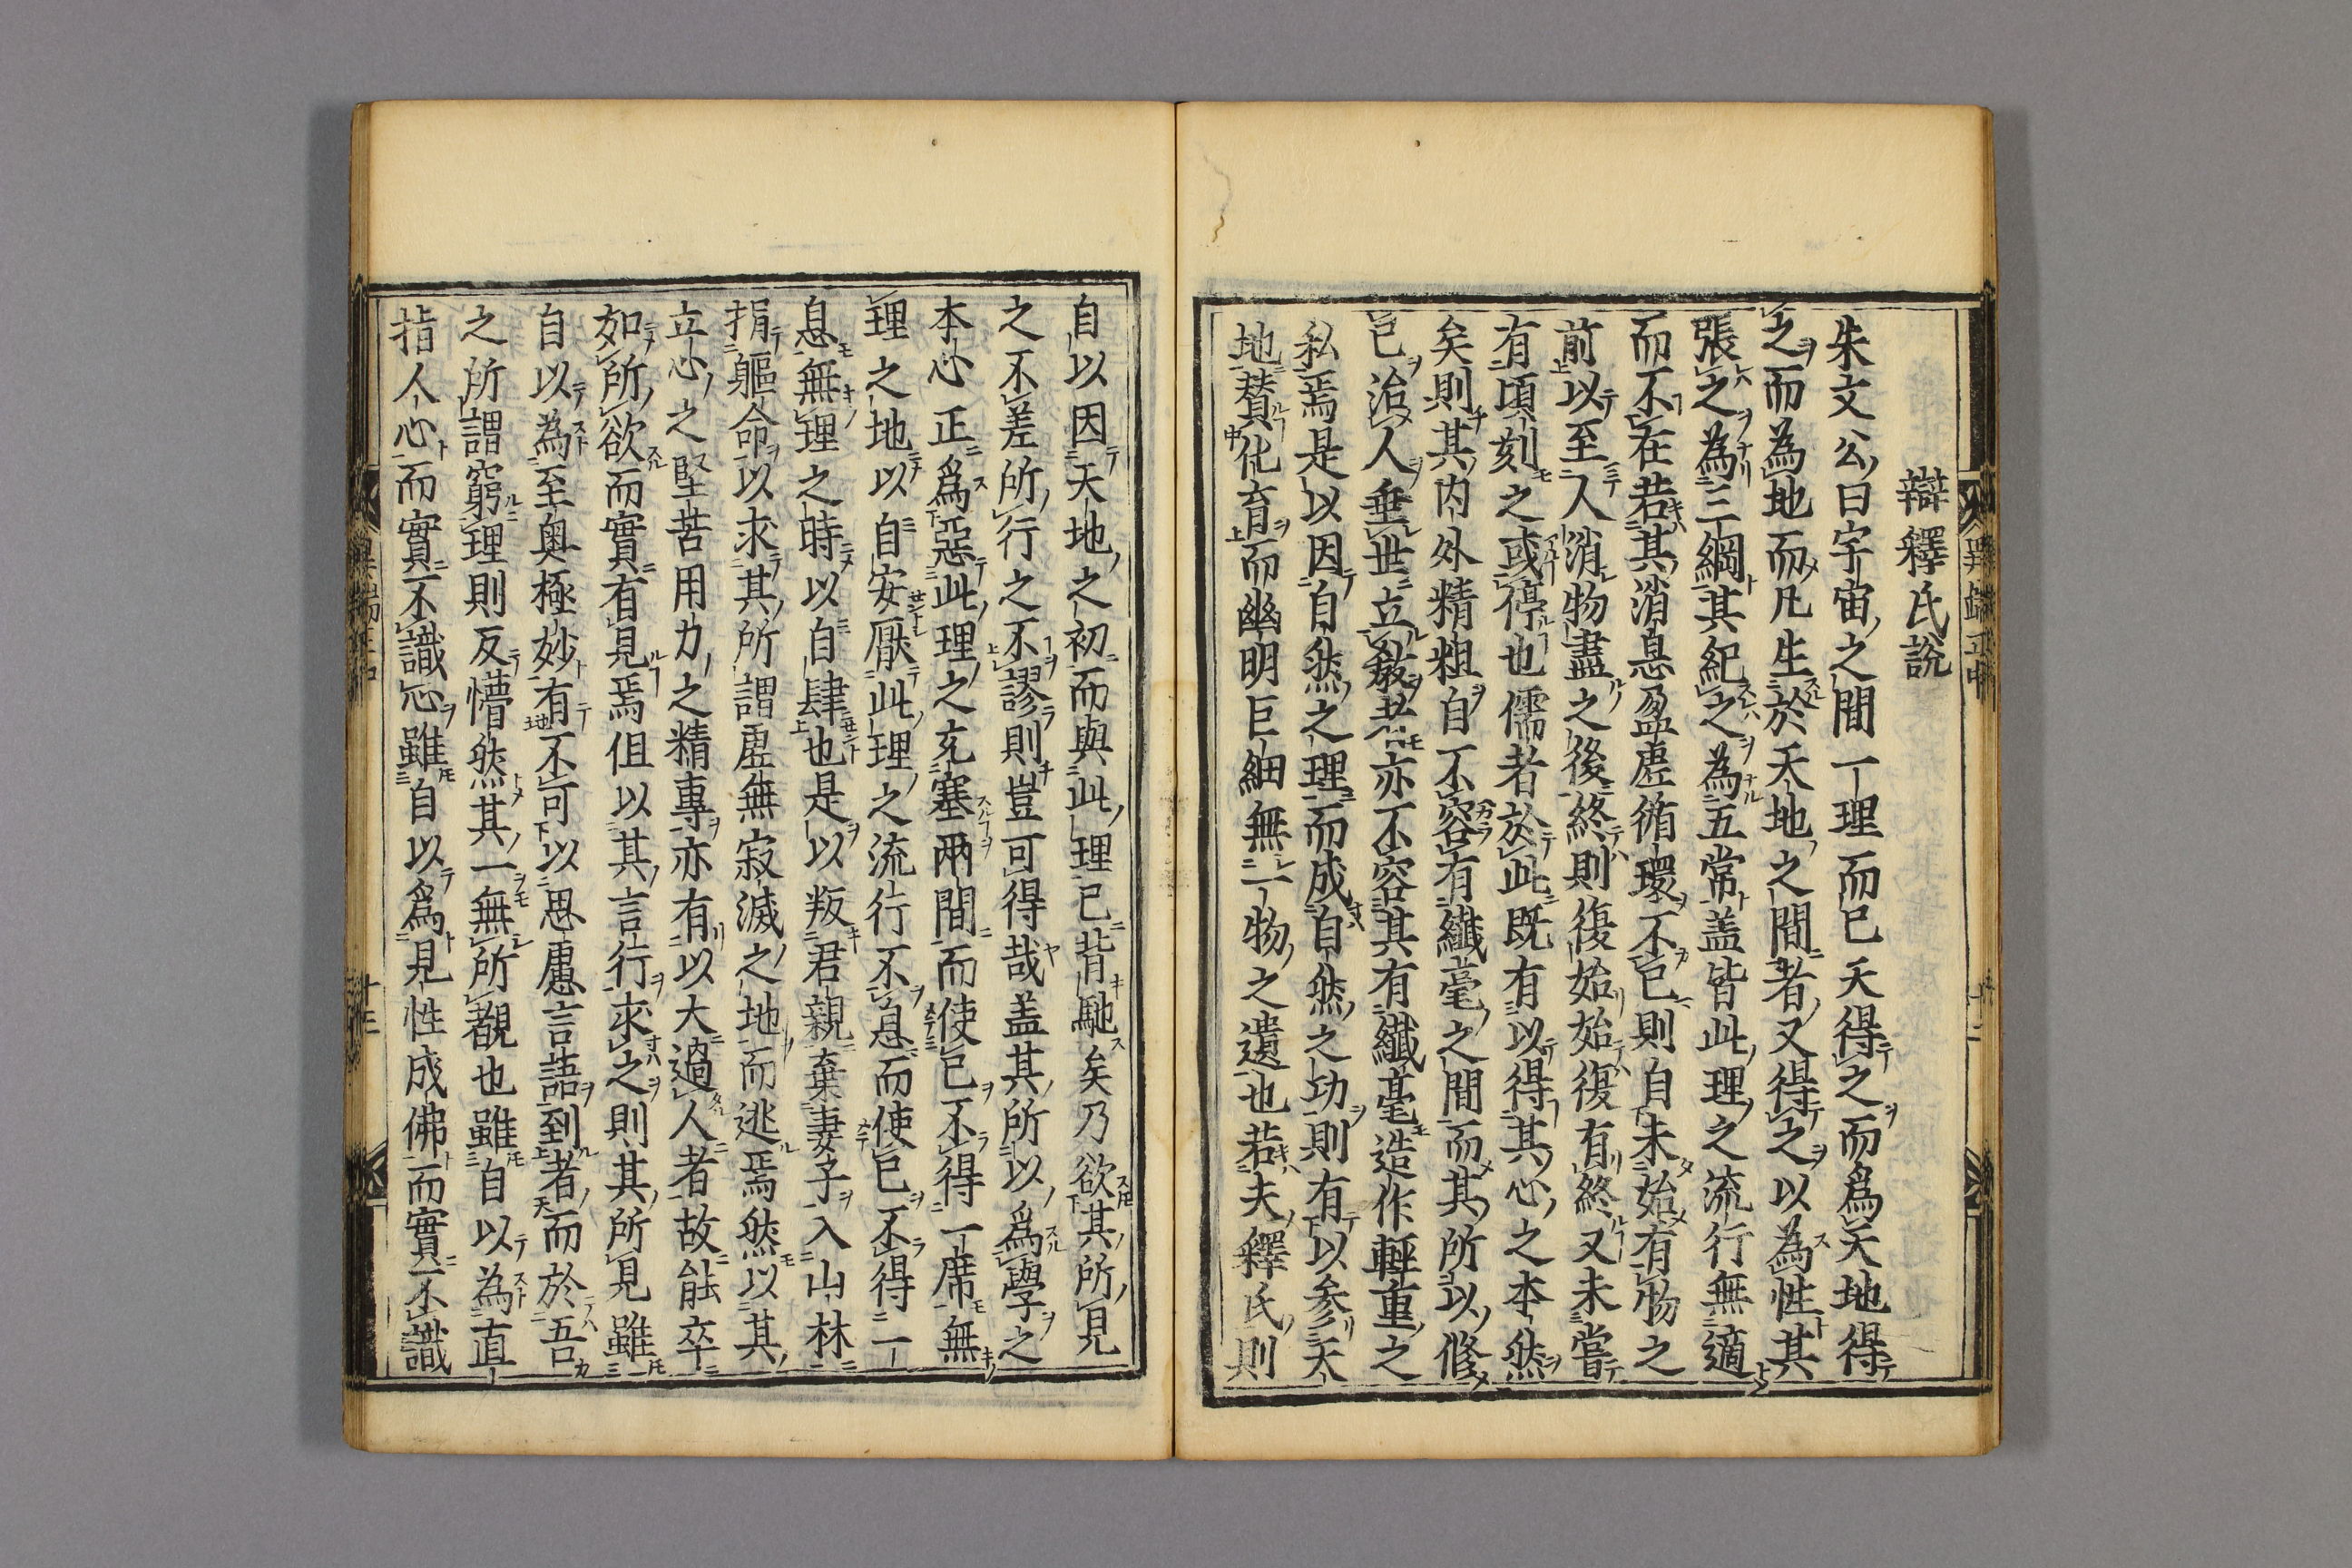 辯釋氏說
朱文公曰宇宙之間一理而已天得之而爲天地得
之而為地而凡生於天地之間者又得之以為性其
張之為三綱其紀之為五常盖皆此理之流行無適
而不在若其消息盈虛循環不已則自未始有物之
前以至人消物盡之後終則復始始復有終又未嘗
有頃刻之或停也儒者於此既有以得其心之本然
矣則其内外精粗自不容有纖毫之間而其所以修
已治人垂世立敎者亦不容其有纖毫造作輕重之
私焉是以因自然之理而成自然之功則有以參天
地贊化育而幽明巨細無一物之遺也若夫釋氏則
自以因天地之初而與此理已背馳矣乃欲其所見
之不差所行之不謬則豈可得哉盖其所以爲學之
本心正爲惡此理之充塞兩間而使已不得一席無
理之地以自安厭此理之流行不息而使已不得一
息無理之時以自肆也是以叛君親棄妻子入山林
捐軀命以求其所謂虛無寂滅之地而逃焉然以其
立心之堅苦用力之精專亦有以大過人者故能卒
如所欲而實有見焉但以其言行求之則其所見雖
自以為至奧極妙有不可以思慮言語到者而於吾
之所謂窮理則反懵然其一無所覩也雖自以為直
指人心而實不識心雖自以爲見性成佛而實不識
異端正中
十二